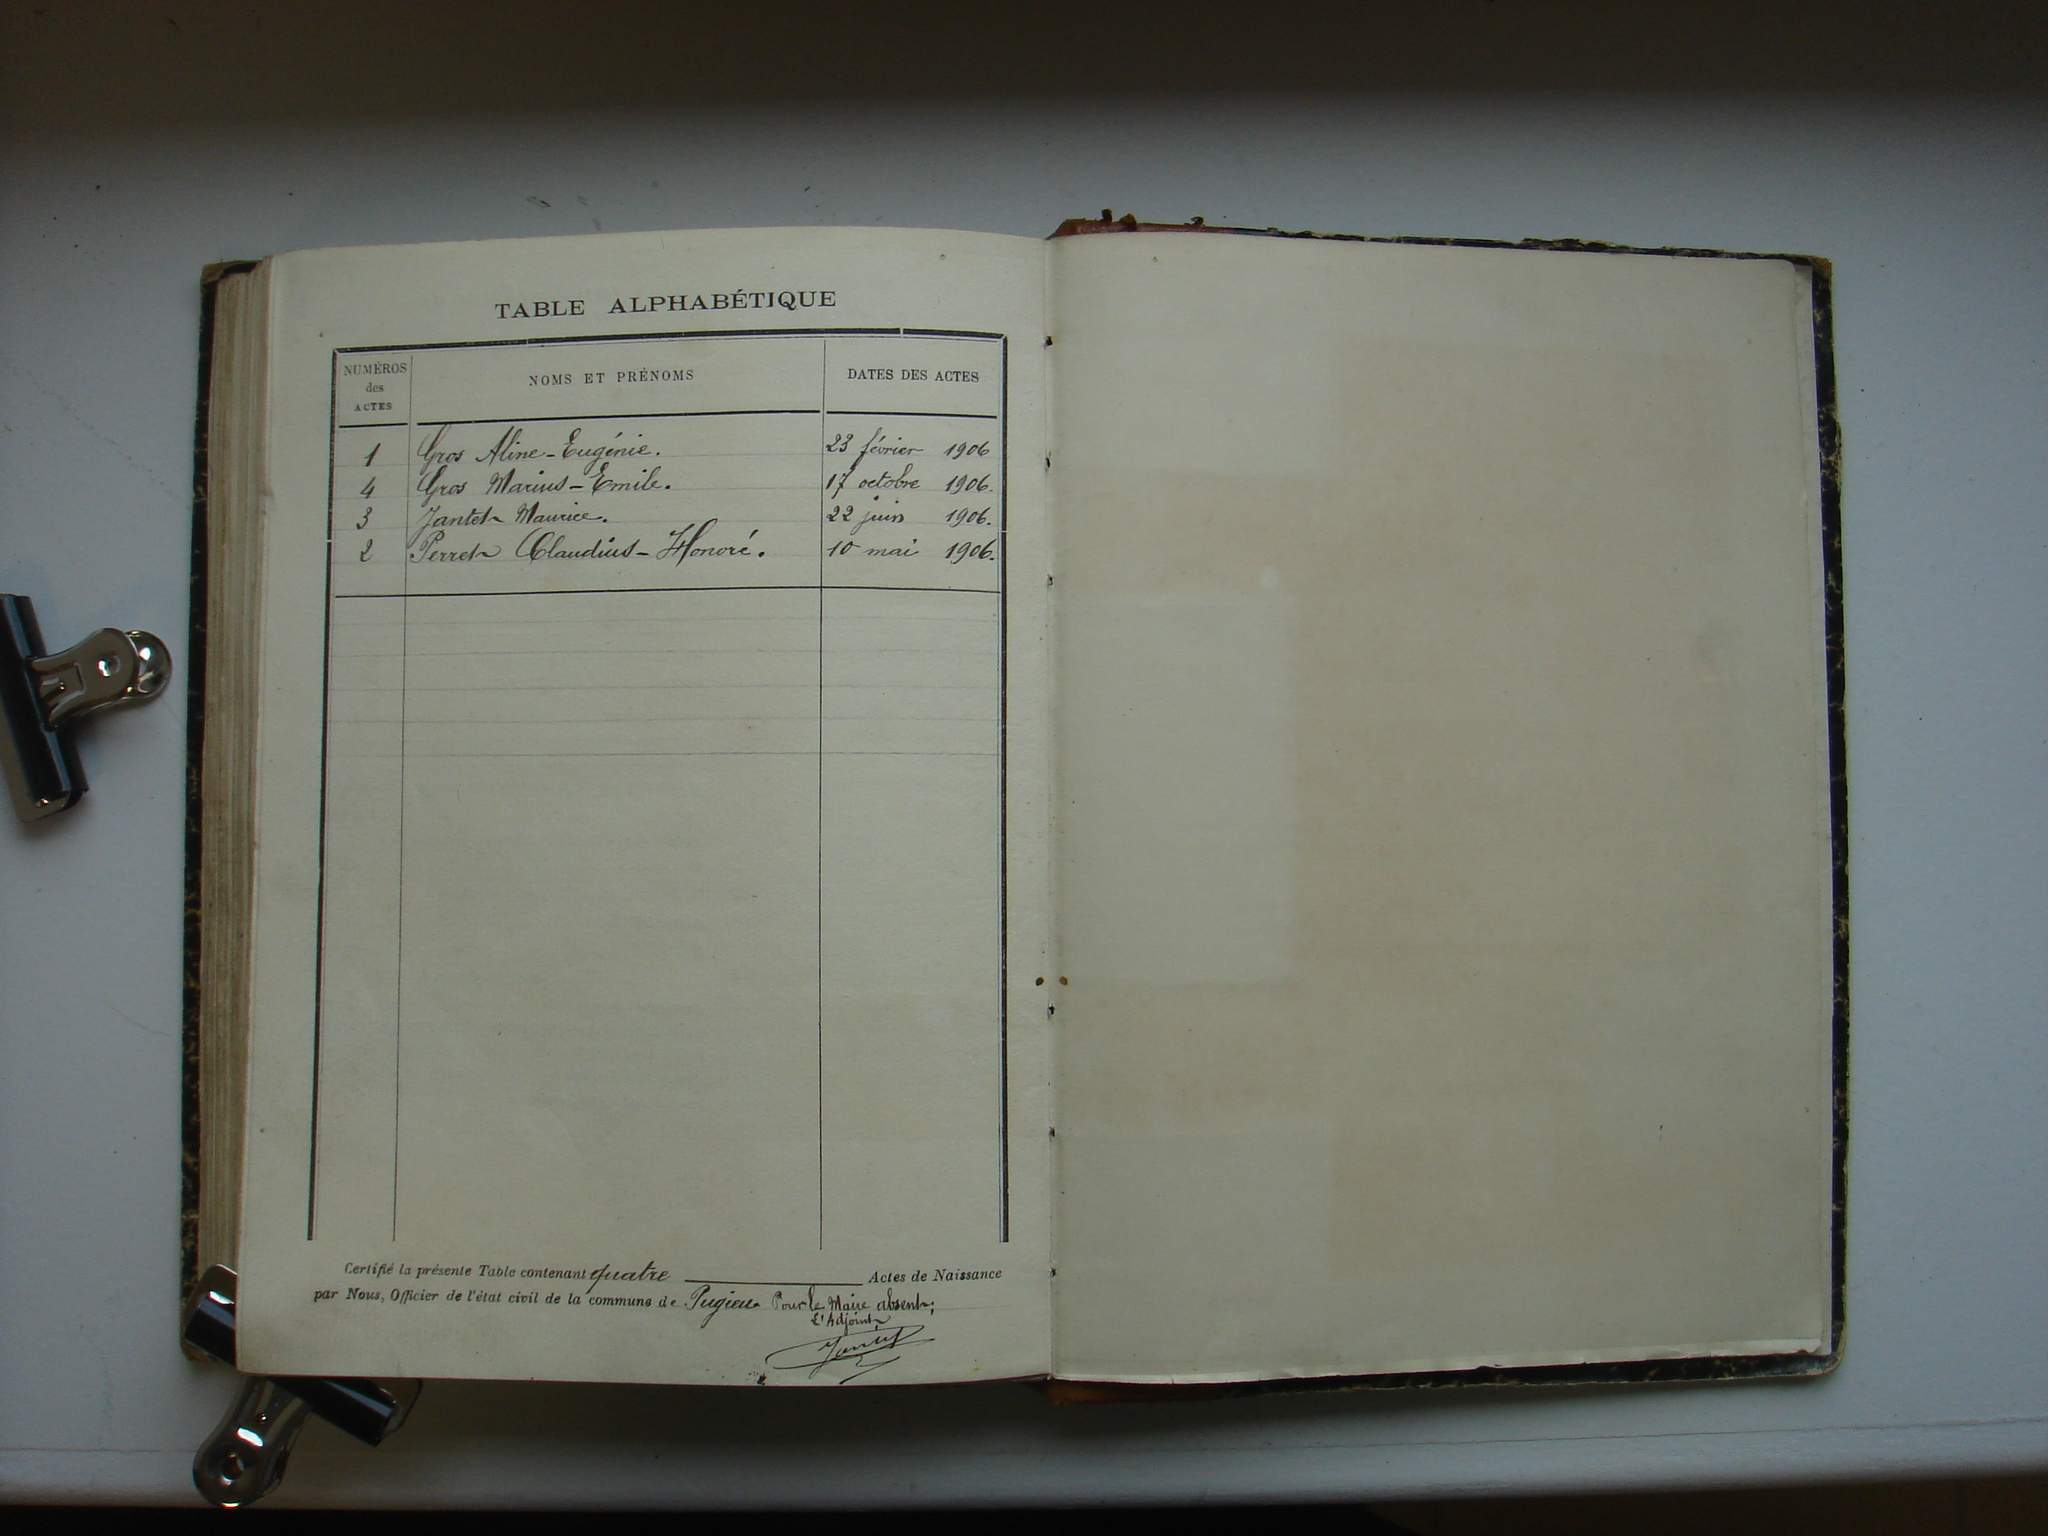 TABLE ALPHABÉTIQUE
NUMÉROS des ACTES NOMS ET PRÉNOMS DATES DES ACTES
1 Gros Aline-Eugénie. 23 février 1906
4 Gros Marius-Emile. 17 octobre 1906.
3 Jantet Maurice. 22 juin 1906.
2 Perret Claudius-Honoré. 10 mai 1906.
Certifié la présente Table contenant quatre Actes de Naissance
par Nous, Officier de l'état civil de la commune de Pugieu Pour le Maire absent;
L'Adjoint
Jantet